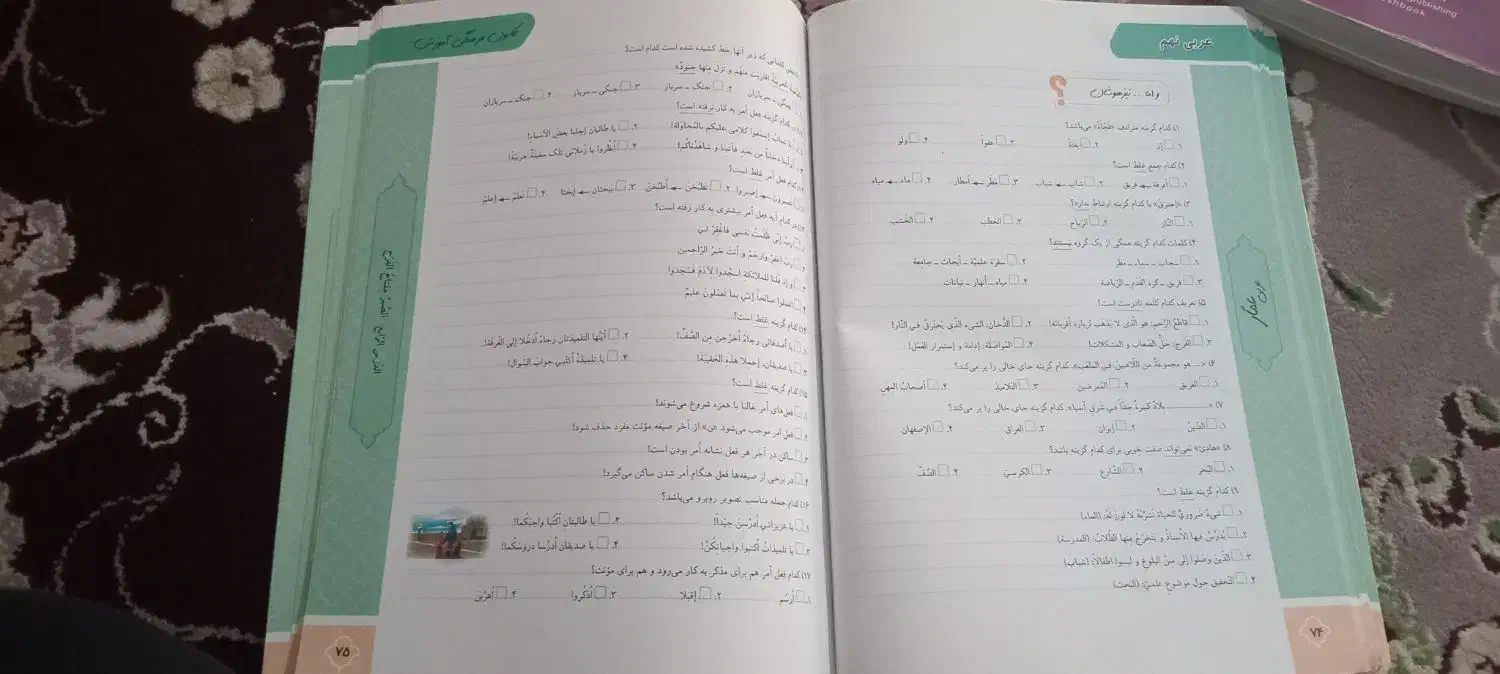 عربی نهم
و اما... تیزهوشان
۱) کدام گزینه مترادف «فَجأةً» می‌باشد؟
۱. إذ ۲. بغتةً ۳. عفواً ۴. ولو
۲) کدام جمع غلط است؟
۱. أفرقة ← فریق ۲. شاب ← شباب ۳. مَطَر ← أمطار ۴. ماء ← میاه
۳) «إحترَقَ» با کدام گزینه ارتباط ندارد؟
۱. النّار ۲. الرّیاح ۳. الحَطَب ۴. الخَشَب
۴) کلمات کدام گزینه همگی از یک گروه نیستند؟
۱. سَحاب ـ سماء ـ مطر ۲. سفرة علمیّة ـ أبحاث ـ جامعة
۳. فریق ـ کرة القدم ـ الرّیاضة ۴. میاه ـ أنهار ـ نباتات
۵) تعریف کدام کلمه نادرست است؟
۱. قاطعُ الرَّحِم: هو الّذی لا یذهب لزیارة أقربائه! ۲. الدُّخان: الشیء الّذی یَحتَرِقُ فی النّار!
۳. الفَرَج: حَلُّ الصِّعاب و المشکلات! ۴. المُواصَلة: إدامة و إستمرار العَمَل!
۶) «... هو مجموعةٌ من اللّاعبینَ فی المَلعَب». کدام گزینه جای خالی را پر می‌کند؟
۱. الفریق ۲. المُمرضین ۳. التّلامیذ ۴. أصحابُ المِهَن
۷) «............ بلادٌ کبیرةٌ جدّاً فی شرقِ آسیا». کدام گزینه جای خالی را پر می‌کند؟
۱. الصّینُ ۲. إیران ۳. العراق ۴. الإصفهان
۸) «هادِئ» نمی‌تواند صفت خوبی برای کدام گزینه باشد؟
۱. البَحر ۲. الشّارع ۳. الکرسیّ ۴. الصَّفّ
۹) کدام گزینه غلط است؟
۱. شیءٌ ضروریٌّ للحیاة نَشرَبُهُ لا لونَ لَهُ: (الماء)
۲. یُدَرِّسُ فیها الأُستاذ و یَتَخَرَّجُ مِنها الطُّلابُ: (المدرسة)
۳. الّذینَ وَصَلوا إلی سِنِّ البلوغ و لیسوا اطفالاً: (شباب)
۴. التّحقیق حول موضوعٍ علمیّ: (البحث)
۷۴
کلمات کدام
معنی کلماتی که زیر آنها خط کشیده شده است کدام است؟
«السفینة الحربیّة اقترَبَت مِنهُم و نَزَلَ مِنها جنودٌ»
جنگی ـ سربازان ۲. جنگ ـ سرباز ۳. جنگی ـ سرباز ۴. جنگ ـ سربازان
در کدام گزینه فعل أمر به کار نرفته است؟
إسمَعوا کلامی علیکم بالمُحاولة! ۲. یا طالبان إجلبا بعضَ الأشیاء!
دُخاناً من بعیدٍ فأتینا و شاهَدْناکُم! ۴. أُنظُروا یا زُملائی تِلکَ سفینةٌ حربیّة!
کدام فعل أمر غلط است؟
تصبرون ← إصبروا ۲. تَطبُخنَ ← أُطبُخنَ ۳. تبحثان ← إبحثا ۴. تعلمُ ← إعلَمْ
در کدام آیه فعل أمر بیشتری به کار رفته است؟
ربِّ إنّی ظَلَمتُ نفسی فَاغْفِرْ لی
ربِّ اغفِرْ وارحَمْ و أنتَ خَیرُ الرّاحمین
و إذ قلنا للملائکةِ اسجُدوا لآدَمَ فَسَجدوا
اعملوا صالحاً إنّی بِما تَعمَلونَ علیمٌ
کدام گزینه غلط است؟
۱. یا أصدقائی رجاءً أُخرُجنَ مِنَ الصَّفّ! ۲. أیّتها التلمیذتان رجاءً أُدخُلا إلی الغُرفة!
یا صدیقان، إحملا هذهِ الحَقیبَة! ۴. یا تلمیذةُ أُکتُبی جوابَ السّوال!
۱۵) کدام گزینه غلط است؟
۱. فعل‌های أمر غالباً با همزه شروع می‌شوند!
۲. فعل أمر موجب می‌شود «ن» از آخر صیغه مؤنث مفرد حذف شود!
۳. ساکن در آخر هر فعل نشانه أمر بودن است!
۴. در برخی از صیغه‌ها فعل هنگام أمر شدن ساکن می‌گیرد!
۱۶) کدام جمله مناسب تصویر روبرو می‌باشد؟
۱. یا عزیزاتی أُدرُسنَ جیّداً! ۲. یا طالبتان أُکتُبا واجبَکُما!
۳. یا تلمیذاتُ أُکتبوا واجباتِکُنَّ! ۴. یا صدیقان أُدرُسا دروسَکُما!
۱۷) کدام فعل أمر هم برای مذکر به کار می‌رود و هم برای مؤنث؟
۱. أُرسُم ۲. إقبَلا ۳. أُذکُروا ۴. أُهرُبنَ
الدّرس الرّابع الصَّبرُ مِفتاحُ الفَرَج
۷۵